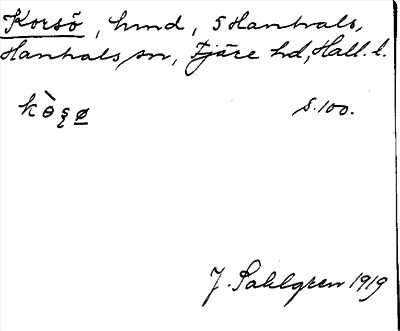 Korsö, hund, 5 Hanhals,
Hanhals sn, Fjäre hd, Hall. l.
s. 100.
J. Sahlgren 1919